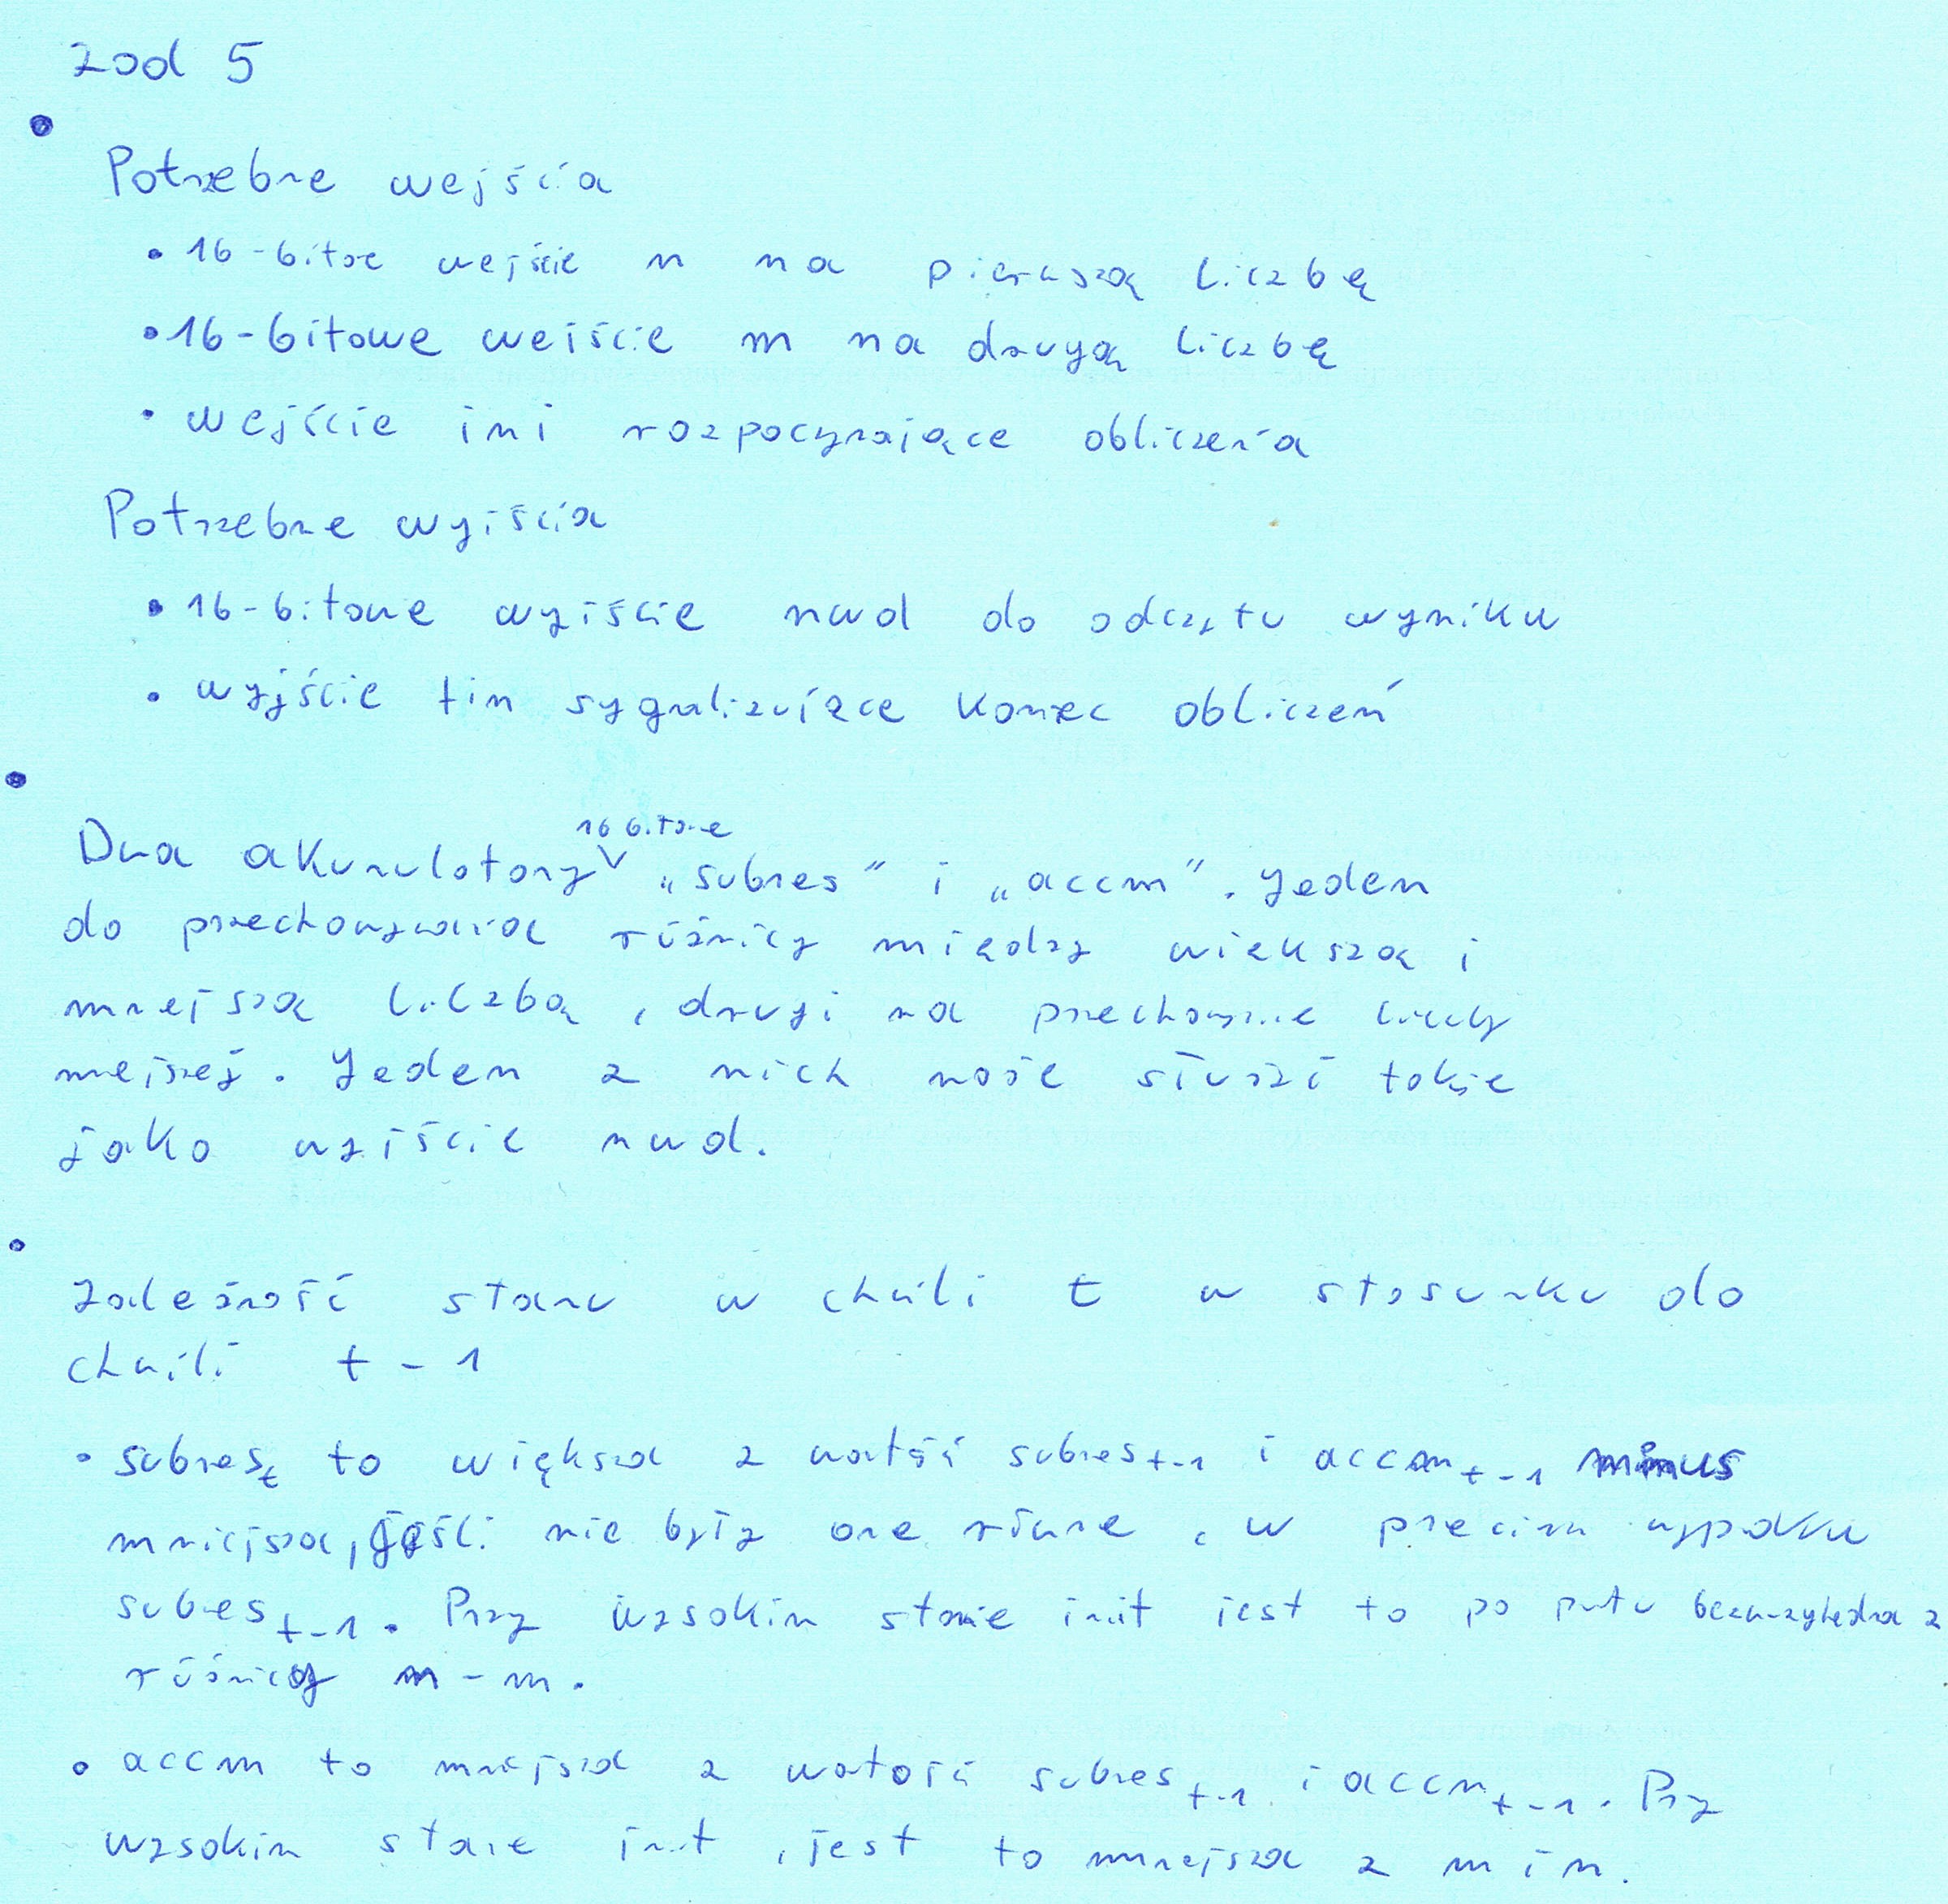 Zad 5
•
Potrzebne wejścia
• 16-bitowe wejście n na pierwszą liczbę
• 16-bitowe wejście m na drugą liczbę
• wejście ini rozpoczynające obliczenia
Potrzebne wyjścia
• 16-bitowe wyjście nwd do odczytu wyniku
• wyjście fin sygnalizujące koniec obliczeń
•
16 bitowe
Dwa akumulatory „subres” i „accm”. Jeden
do przechowywania różnicy między większą i
mniejszą liczbą, drugi na przechowanie liczby
mniejszej. Jeden z nich może służyć także
jako wyjście nwd.
•
Zależność stanu w chwili t w stosunku do
chwili t-1
• subres_t to większa z wartości subres_t-1 i accm_t-1 minus
mniejsza, jeśli nie były one równe, w przeciwnym wypadku
subres_t-1. Przy wysokim stanie init jest to po prostu bezwzględna z
różnicy n-m.
• accm to mniejsza z wartości subres_t-1 i accm_t-1. Przy
wysokim stanie init, jest to mniejsza z m i n.